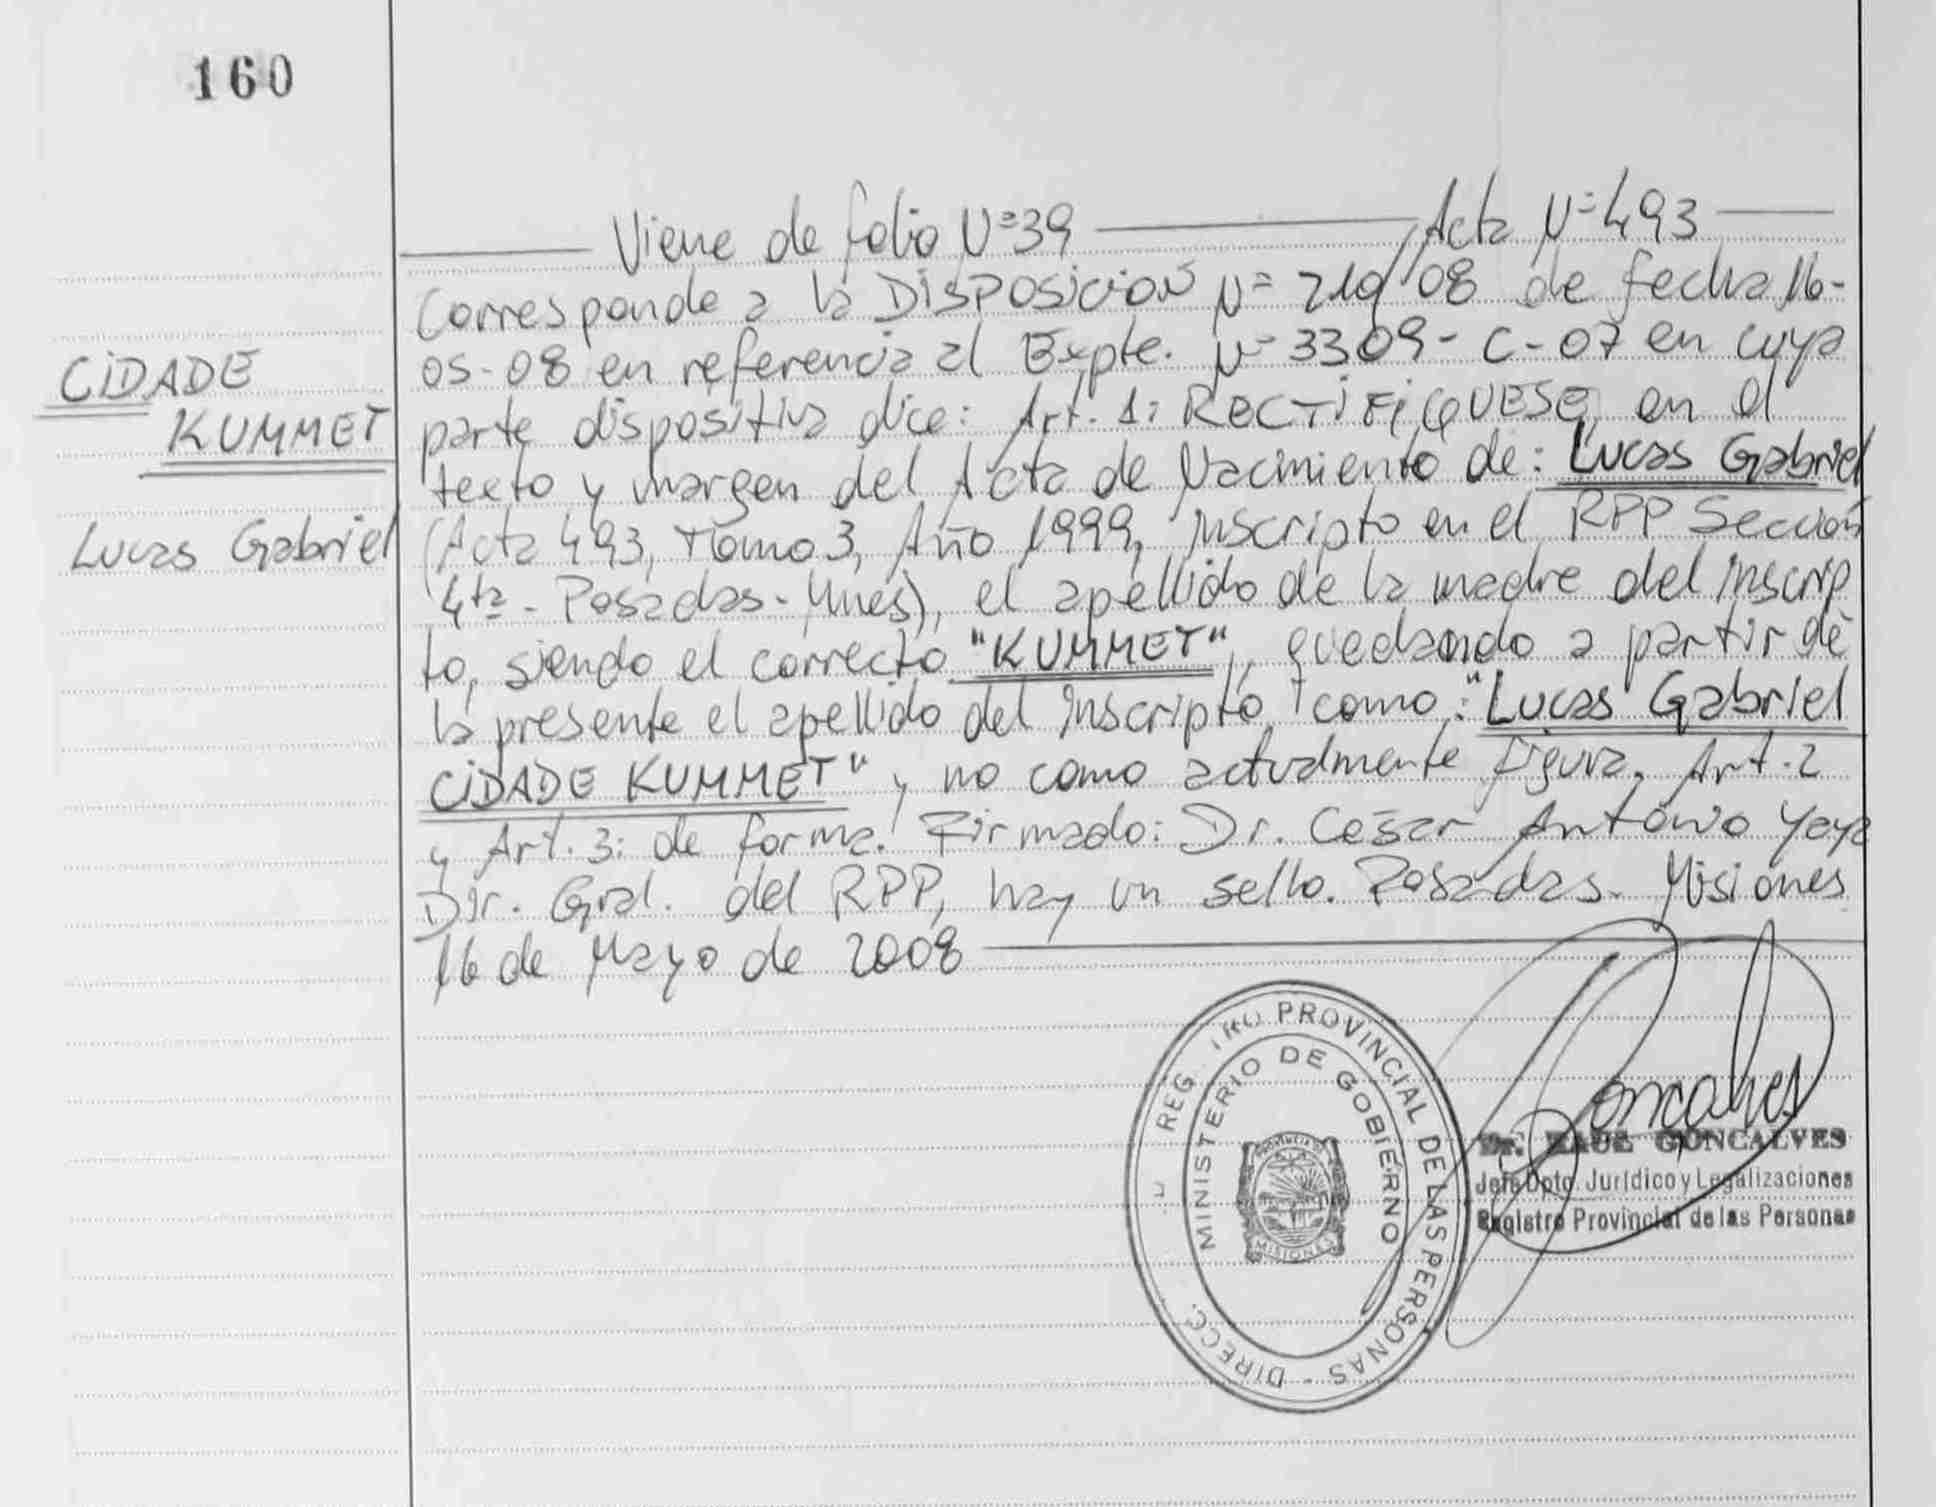 160
Viene de folio Nº39 Acta Nº 493
CIDADE
KUMMET
Lucas Gabriel
Corresponde a la Disposición Nº 210/08 de fecha 16-
05-08 en referencia al Expte. Nº 3309-C-07 en cuya
parte dispositiva dice: Art. 1: RECTIFIQUESE, en el
texto y margen del Acta de Nacimiento de: Lucas Gabriel
(Acta 493, Tomo 3, Año 1999, inscripto en el RPP Sección
4ta - Posadas - Mnes), el apellido de la madre del inscrip
to, siendo el correcto "KUMMET", quedando a partir de
la presente el apellido del inscripto como: "Lucas Gabriel
CIDADE KUMMET" y no como actualmente figura. Art. 2
y Art. 3: de forma. Firmado: Dr. César Antonio Yaya
Dir. Gral. del RPP, hay un sello. Posadas. Misiones
16 de Mayo de 2008
PROVINCIAL DE LAS PERSONAS - DIRECC.
MINISTERIO DE GOBIERNO
PROVINCIA DE
MISIONES
Goncalves
Dr. RAUL GONCALVES
Jefe Dpto. Jurídico y Legalizaciones
Registro Provincial de las Personas